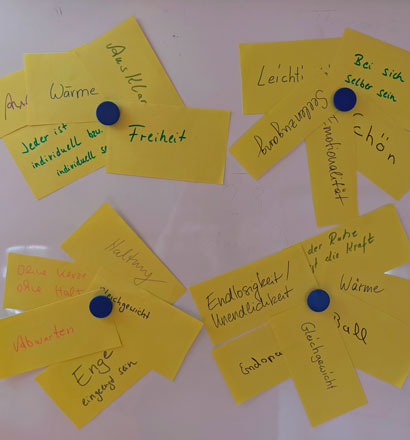 Wärme
Jeder ist
individuell bzw.
individuell
Freiheit
Leichti
Bei sich
selber sein
Seelenzugang
Emotionalität
Schön
Haltung
Ohne
Ohne Halt
gleichgewicht
Abwarten
Enge
eingeengt sein
der Ruhe
die Kraft
Endlosigkeit/
Unendlichkeit
Wärme
Ball
Gleichgewicht